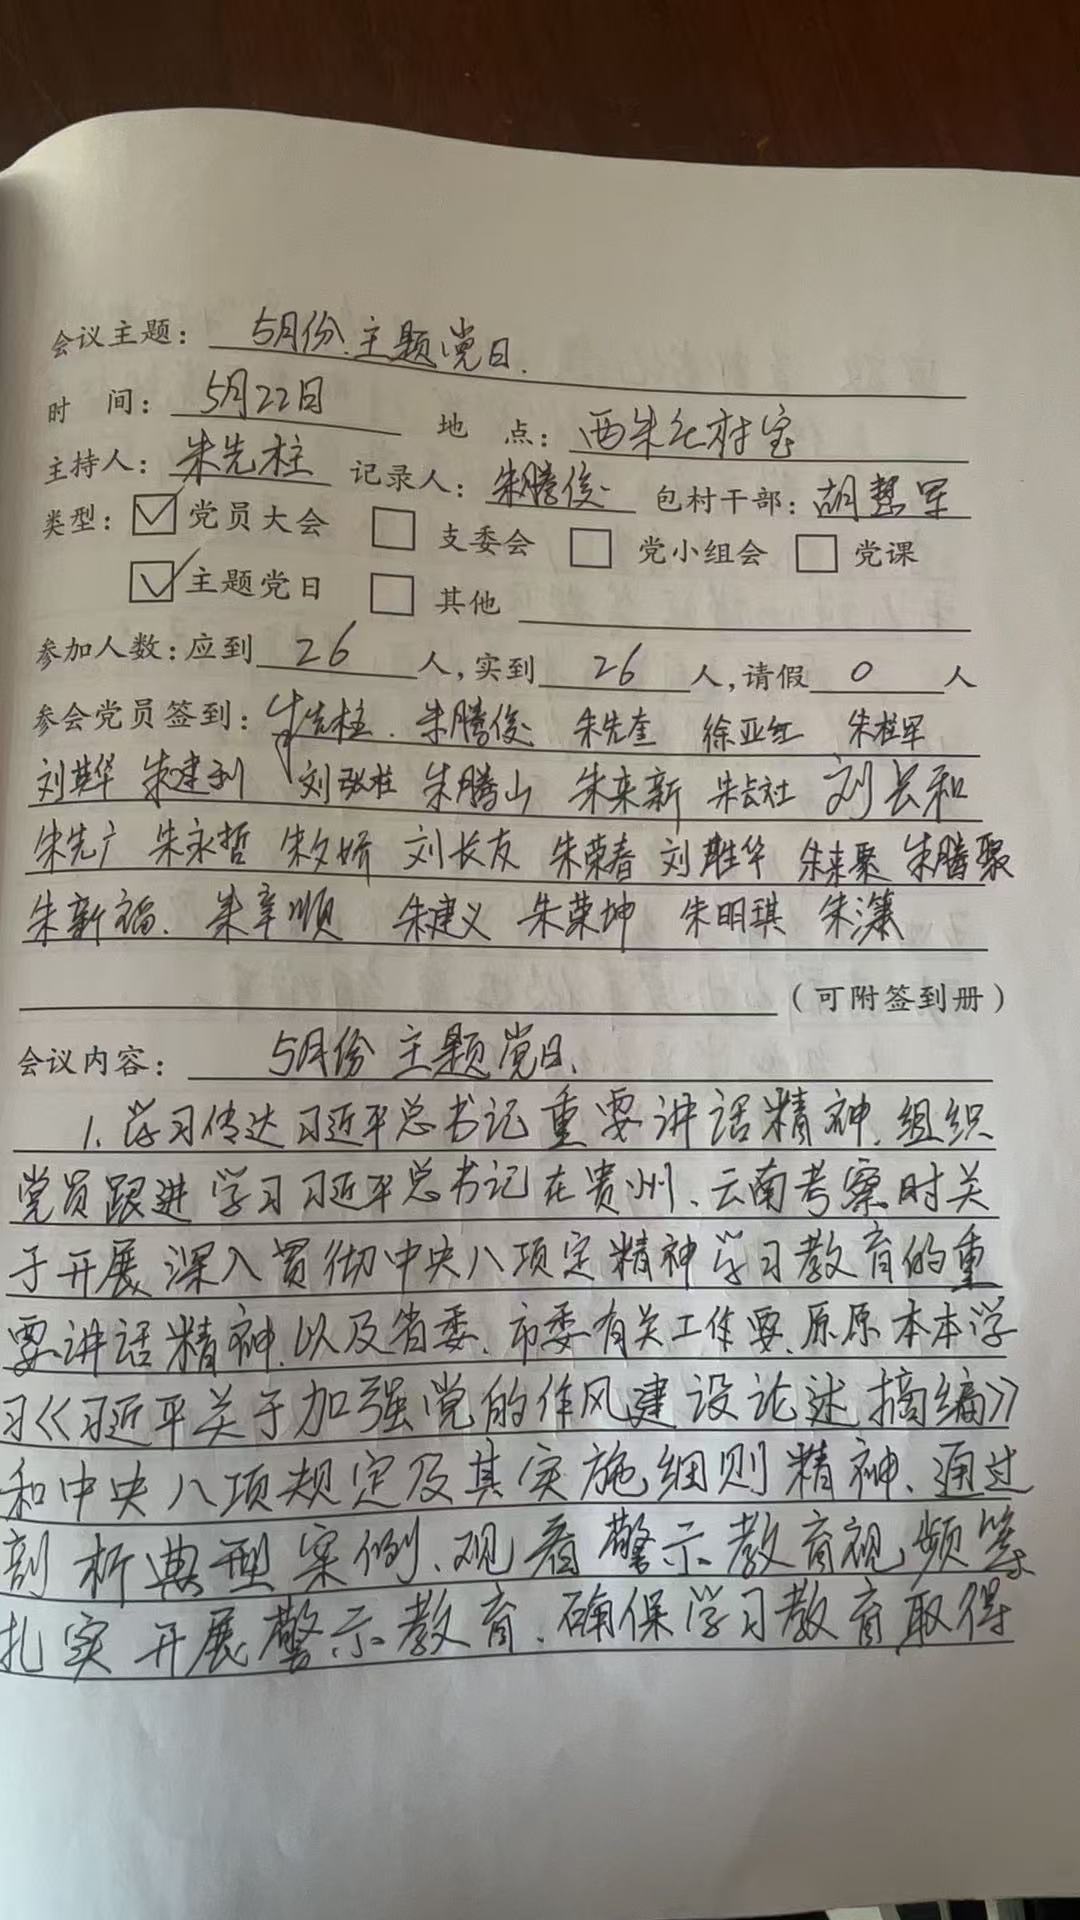 会议主题：5月份、主题党日.
时 间：5月22日 地 点：西朱 村室
主持人：朱先柱 记录人：朱腾俊 包村干部：胡慧军
类型：☑党员大会 □支委会 □党小组会 □党课
☑主题党日 □其他
参加人数：应到 26 人,实到 26 人,请假 0 人
参会党员签到：朱先柱. 朱腾俊 朱先奎 徐亚红 朱桂军
刘 华 朱建利 刘 桂 朱腾山 朱来新 朱 刘长和
朱先广 朱永哲 朱文娇 刘长友 朱荣春 刘胜华 朱来聚 朱腾聚
朱新福. 朱孝顺 朱建义 朱荣坤 朱明琪 朱
（可附签到册）
会议内容：5月份主题党日、
1、学习传达习近平总书记重要讲话精神、组织
党员跟进学习习近平总书记在贵州、云南考察时关
于开展深入贯彻中央八项定精神学习教育的重
要讲话精神、以及省委、市委有关工作要、原原本本学
习《习近平关于加强党的作风建设论述摘编》
和中央八项规定及其实施细则精神、通过
剖析典型案例、观看警示教育视频等
扎实开展警示教育、确保学习教育取得